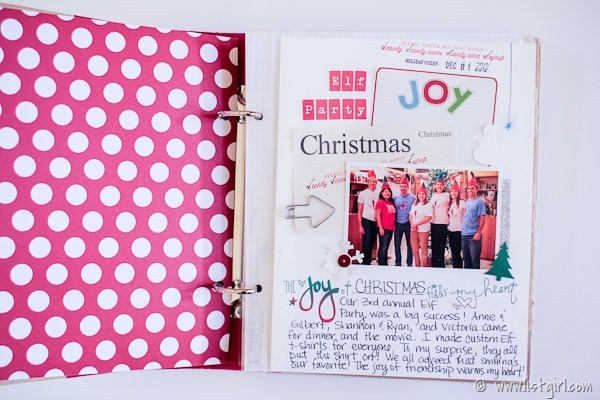 PLEASE CHECK ALL THAT APPLY
candy candy canes candy corn syrup
HOLIDAY CHEER DEC 01 2012
Elf
Party
JOY
Christmas Christmas
syrup
THE Joy of CHRISTMAS fills my heart
Our 3rd annual Elf
Party was a big success! Anne &
Gilbert, Shannon & Ryan, and Victoria came
for dinner and the movie. I made custom Elf
t-shirts for everyone. To my surprise, they all
put the shirt on!! We all agreed that smiling's
our favorite! The joy of friendship warms my heart!
© www.listgirl.com